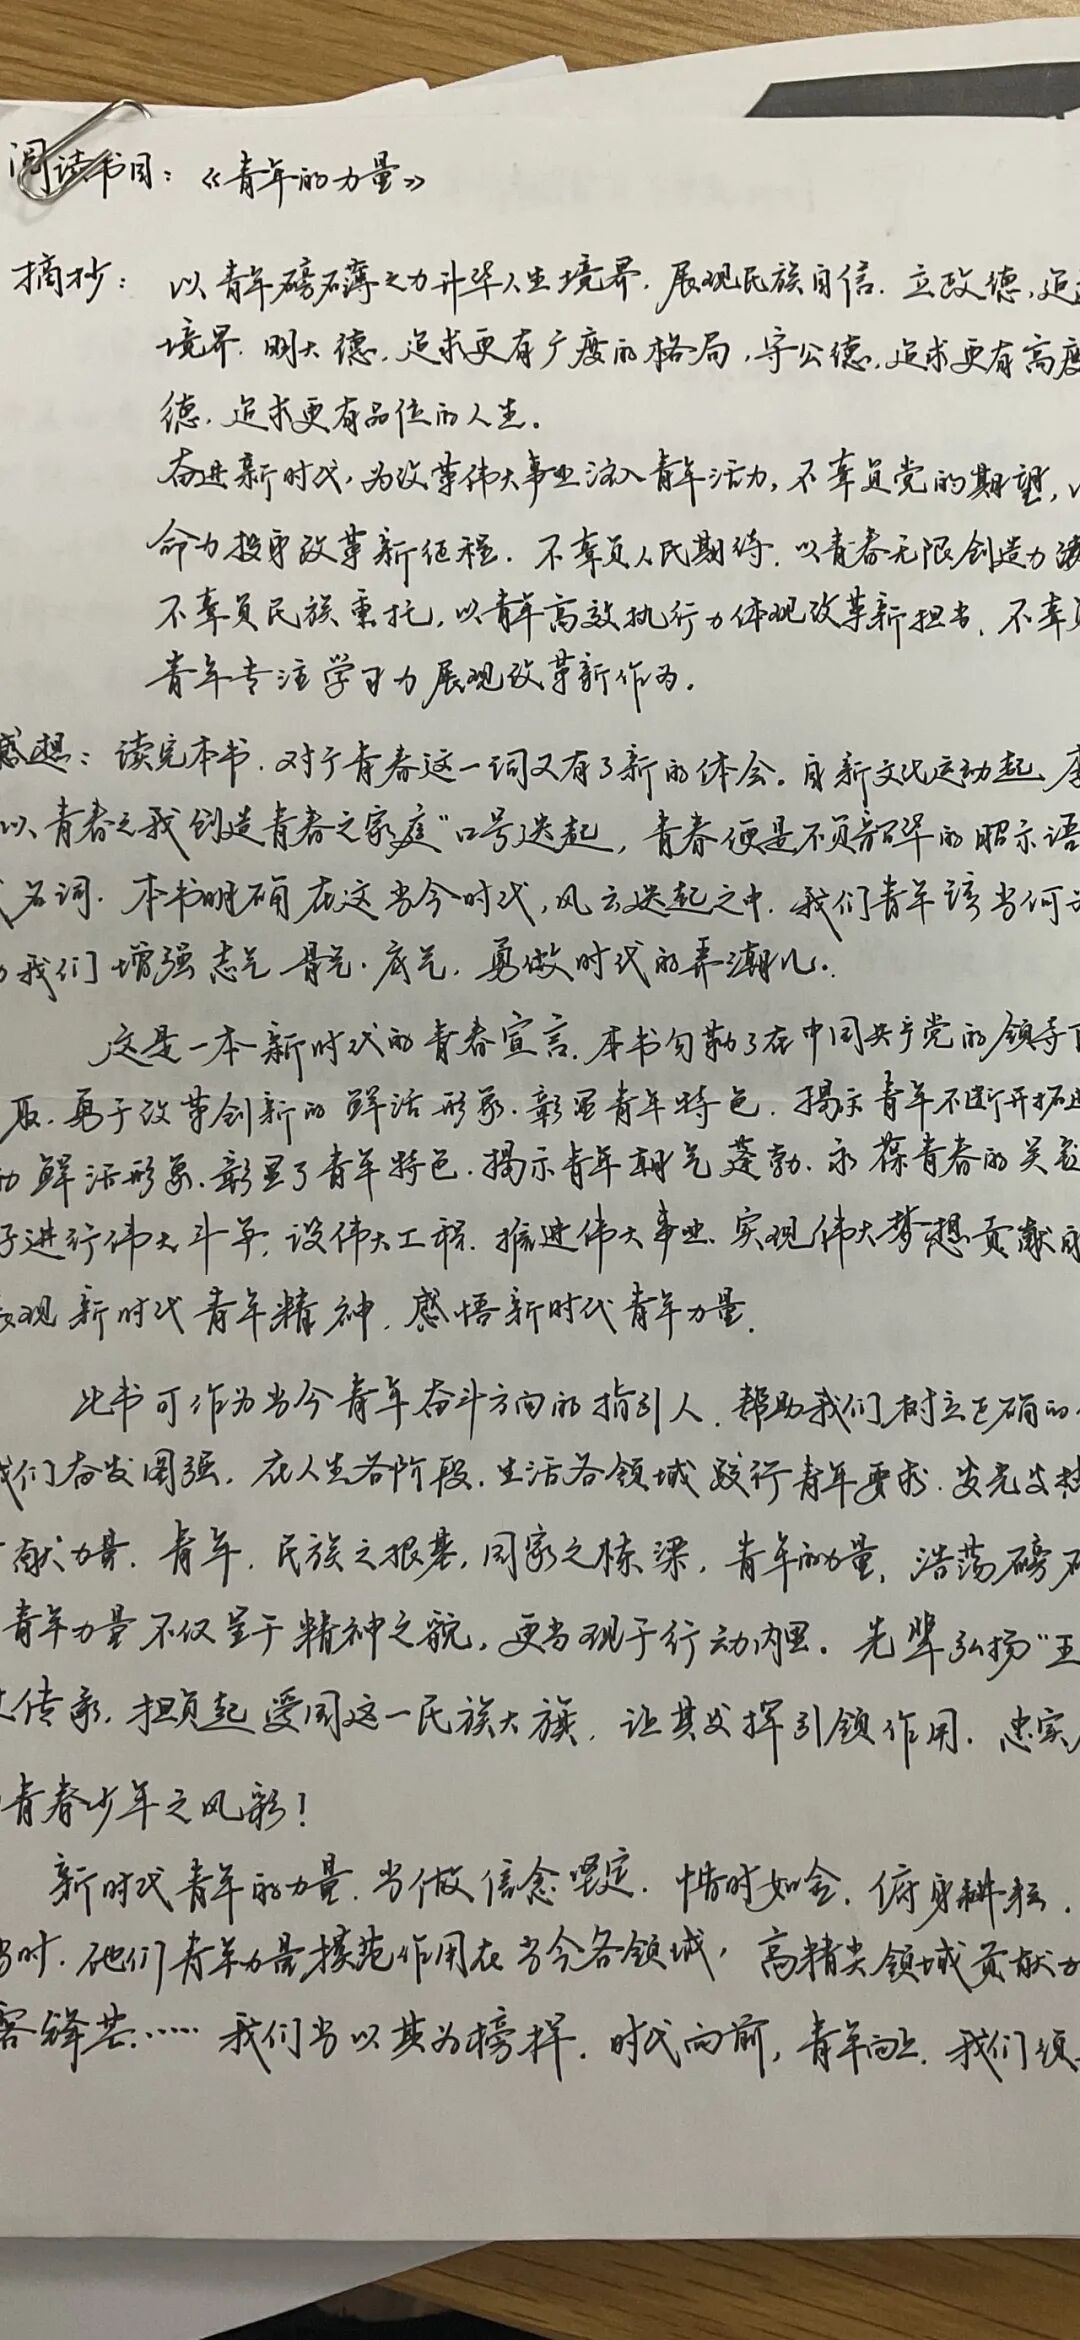 阅读书目：《青年的力量》
摘抄： 以青年磅礴之力升华人生境界，展现民族自信．立政德，追
境界．明大德，追求更有广度的格局，守公德，追求更有高度
德，追求更有品位的人生。
奋进新时代，为改革伟大事业注入青年活力，不辜负党的期望，以
命力投身改革新征程．不辜负人民期待．以青春无限创造力
不辜负民族重托，以青年高效执行力体现改革新担当．不辜负
青年专注学习力展现改革新作为．
感想：读完本书．对于青春这一词又有了新的体会。自新文化运动起，李
以青春之我创造青春之家庭”口号迭起，青春便是不负韶华的昭示语
代名词．本书明确在这当今时代，风云迭起之中．我们青年该当何为
我们增强志气．骨气．底气．勇做时代的弄潮儿．
这是一本新时代的青春宣言．本书勾勒了在中国共产党的领导下
取．勇于改革创新的鲜活形象．彰显青年特色．揭示青年不断开拓进
鲜活形象．彰显了青年特色．揭示青年朝气蓬勃．永葆青春的关键
进行伟大斗争．设伟大工程．推进伟大事业．实现伟大梦想贡献
展现新时代青年精神．感悟新时代青年力量．
此书可作为当今青年奋斗方向的指引人．帮助我们树立正确的
我们奋发图强．在人生各阶段．生活各领域践行青年要求．发光发热
献力量．青年．民族之根基，国家之栋梁，青年的力量，浩荡磅礴
青年力量不仅呈于精神之貌，更当现于行动内里．先辈弘扬“五
传承．担负起爱国这一民族大旗．让其发挥引领作用．忠实
青春少年之风彩！
新时代青年的力量．当做信念坚定．惜时如金．俯身耕耘．
当时．他们青年力量模范作用在当今各领域，高精尖领域贡献力
露锋芒……我们当以其为榜样．时代向前，青年向上．我们须